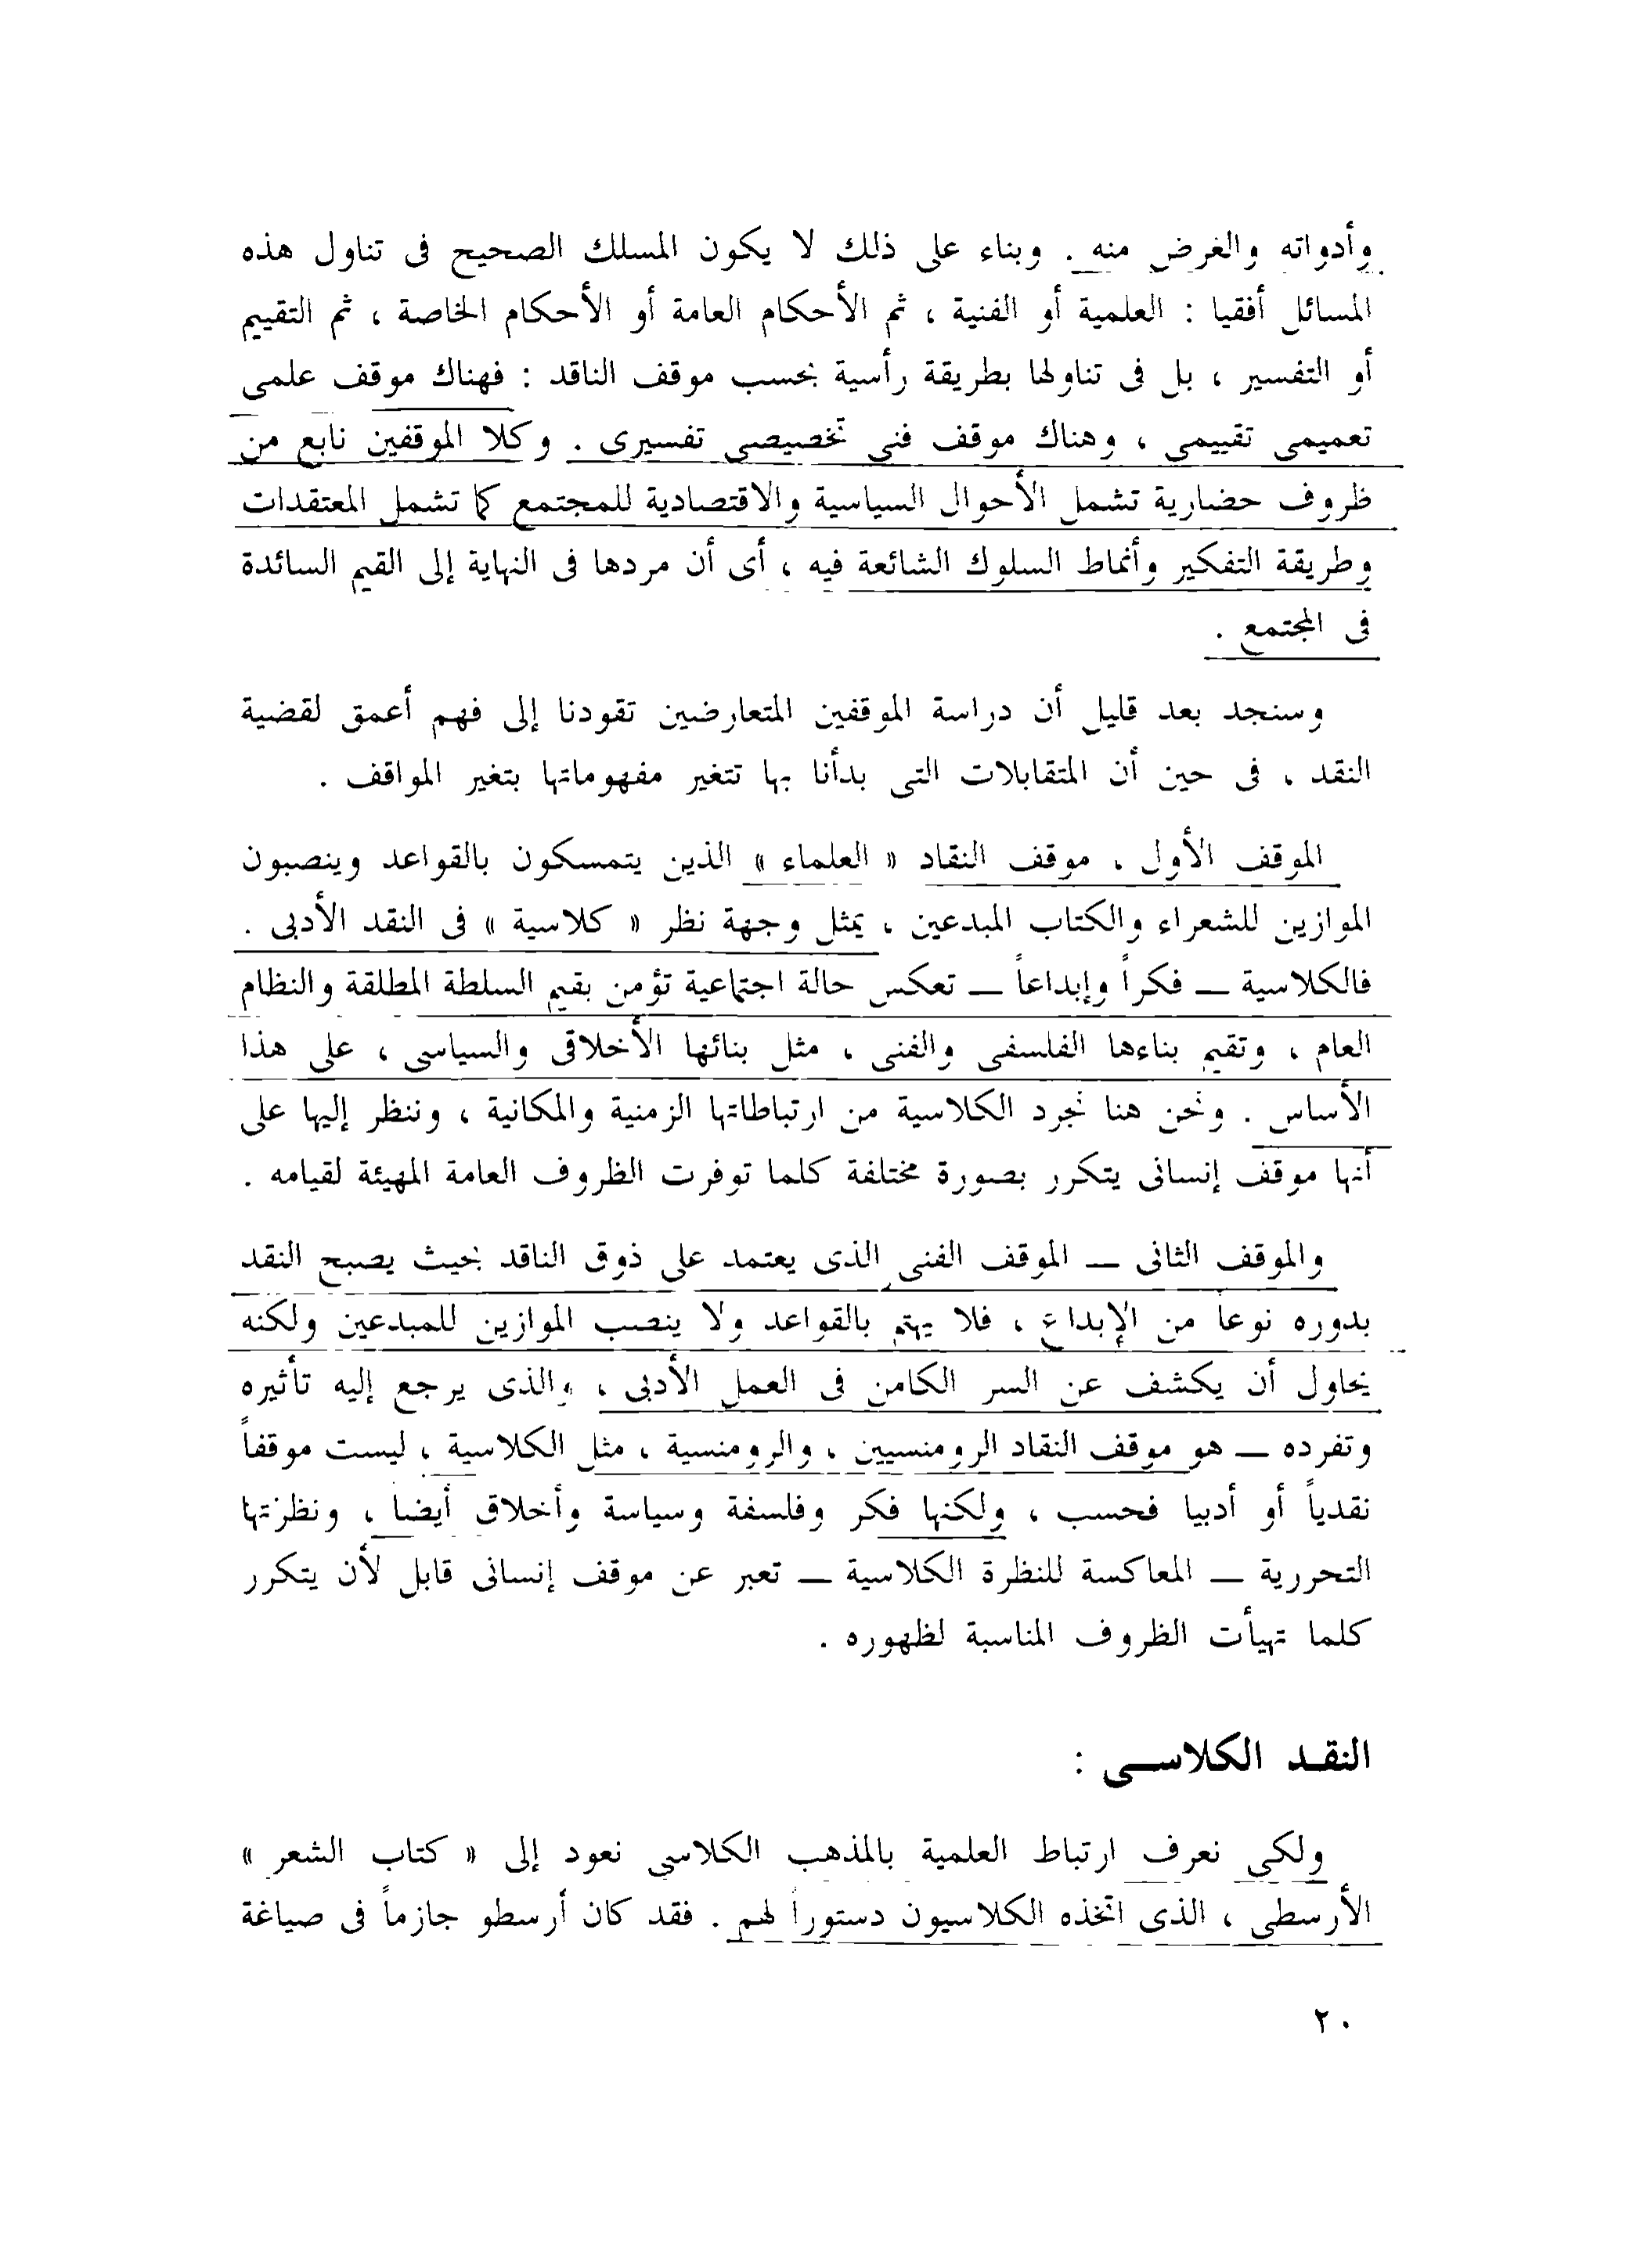 وأدواته والغرض منه . وبناء على ذلك لا يكون المسلك الصحيح فى تناول هذه
المسائل أفقيا : العلمية أو الفنية ، ثم الأحكام العامة أو الأحكام الخاصة ، ثم التقييم
أو التفسير ، بل فى تناولها بطريقة رأسية بحسب موقف الناقد : فهناك موقف علمى
تعميمى تقييمى ، وهناك موقف فنى تخصيصى تفسيرى . وكلا الموقفين نابع من
ظروف حضارية تشمل الأحوال السياسية والاقتصادية للمجتمع كما تشمل المعتقدات
وطريقة التفكير وأنماط السلوك الشائعة فيه ، أى أن مردها فى النهاية إلى القيم السائدة
فى المجتمع .
وسنجد بعد قليل أن دراسة الموقفين المتعارضين تقودنا إلى فهم أعمق لقضية
النقد ، فى حين أن المتقابلات التى بدأنا بها تتغير مفهوماتها بتغير المواقف .
الموقف الأول ، موقف النقاد « العلماء » الذين يتمسكون بالقواعد وينصبون
الموازين للشعراء والكتاب المبدعين ، يمثل وجهة نظر « كلاسية » فى النقد الأدبى .
فالكلاسية ــ فكراً وإبداعاً ــ تعكس حالة اجتماعية تؤمن بقيم السلطة المطلقة والنظام
العام ، وتقيم بناءها الفلسفى والفنى ، مثل بنائها الأخلاقى والسياسى ، على هذا
الأساس . ونحن هنا نجرد الكلاسية من ارتباطاتها الزمنية والمكانية ، وننظر إليها على
أنها موقف إنسانى يتكرر بصورة مختلفة كلما توفرت الظروف العامة المهيئة لقيامه .
والموقف الثانى ــ الموقف الفنى الذى يعتمد على ذوق الناقد بحيث يصبح النقد
بدوره نوعاً من الإبداع ، فلا يهتم بالقواعد ولا ينصب الموازين للمبدعين ولكنه
يحاول أن يكشف عن السر الكامن فى العمل الأدبى ، والذى يرجع إليه تأثيره
وتفرده ــ هو موقف النقاد الرومنسيين ، والرومنسية ، مثل الكلاسية ، ليست موقفاً
نقدياً أو أدبيا فحسب ، ولكنها فكر وفلسفة وسياسة وأخلاق أيضا ، ونظرتها
التحررية ــ المعاكسة للنظرة الكلاسية ــ تعبر عن موقف إنسانى قابل لأن يتكرر
كلما تهيأت الظروف المناسبة لظهوره .
النقد الكلاسى :
ولكى نعرف ارتباط العلمية بالمذهب الكلاسى نعود إلى « كتاب الشعر »
الأرسطى ، الذى اتخذه الكلاسيون دستوراً لهم . فقد كان أرسطو جازماً فى صياغة
٢٠